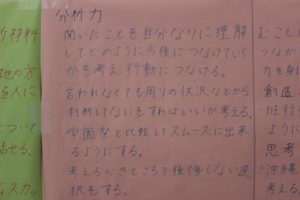 分析力
・聞いたことを自分なりに理解
してどのように今後につなげていく
かを考え行動につなげる。
・言われなくても周りの状況などから
判断してなにをすればいいか考える。
・学園祭と比較してスムーズに出来
るようにする。
・考えるべきところで後悔しない選
択をする。
材料
地の方
を人に
について
話せる。
ィスカッ
むこと
力を身
創造
・班行
よう
・思考
・沖縄
考える